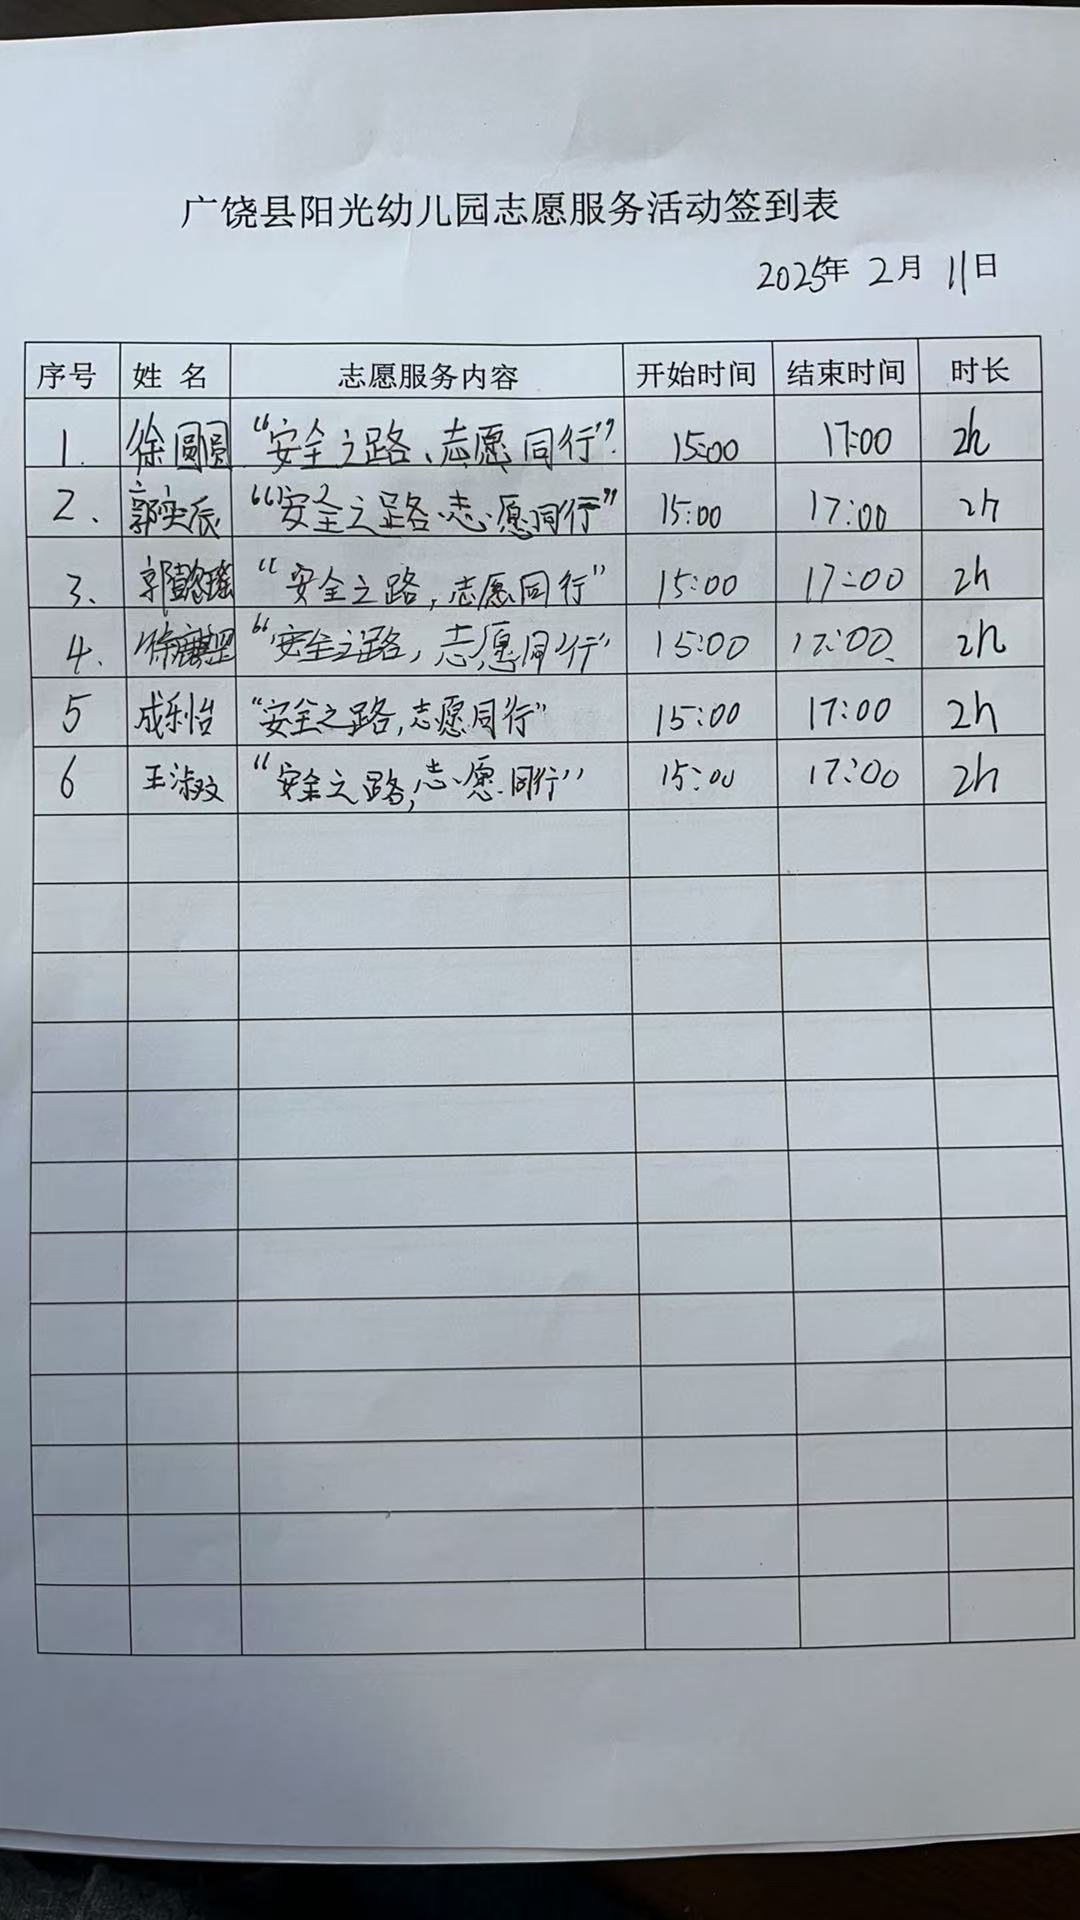 广饶县阳光幼儿园志愿服务活动签到表
2025年 2月 11日
序号 姓 名 志愿服务内容 开始时间 结束时间 时长
1. 徐圆圆 “安全之路、志愿同行” 15:00 17:00 2h
2. 郭奕辰 “安全之路、志愿同行” 15:00 17:00 2h
3. 郭懿瑶 “安全之路,志愿同行” 15:00 17:00 2h
4. 徐 “安全之路,志愿同行” 15:00 17:00 2h
5 成乐怡 “安全之路,志愿同行” 15:00 17:00 2h
6 王淑文 “安全之路,志愿同行” 15:00 17:00 2h